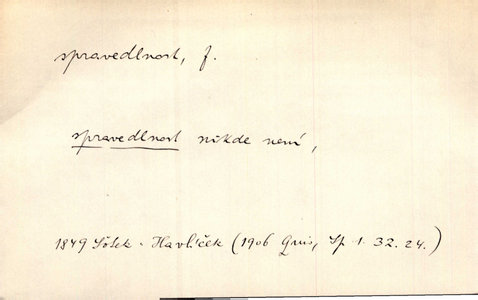 spravedlnost, f.
spravedlnost nikde není,
1849 - Havlíček (1906 Quis, Sp. 1. 32. 24.)